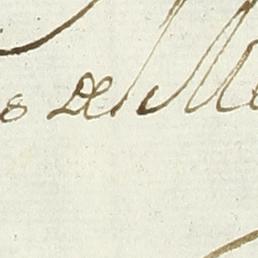 s de Me